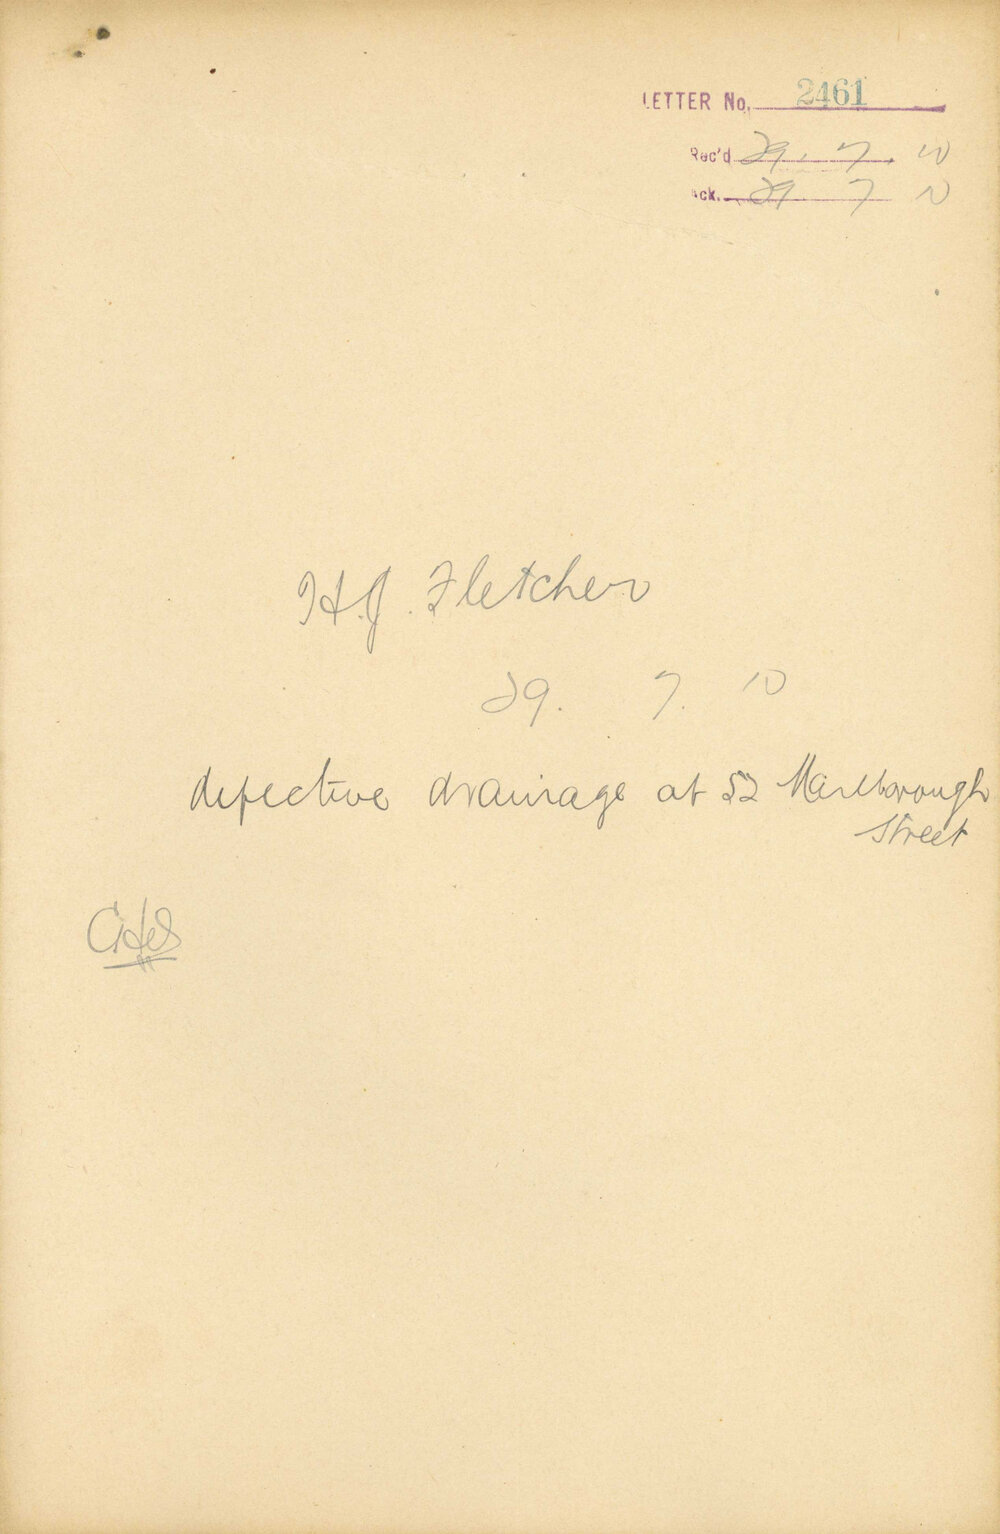 LETTER No. 2461
Rec'd 29. 7. 10
Ack. 29. 7 10
H.J. Fletcher
29. 7. 10
defective drainage at 52 Marlborough
Street